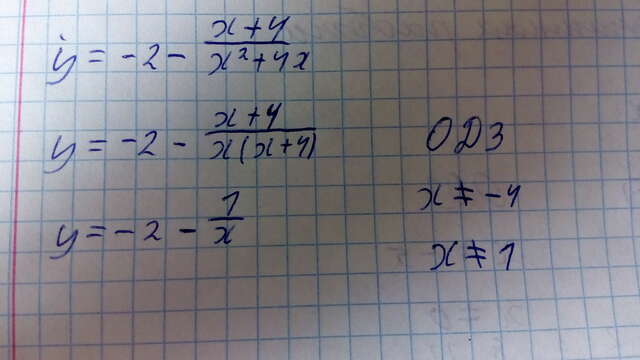 y = -2 - (x+4)/(x²+4x)
y = -2 - (x+4)/(x(x+4))
ОДЗ
x ≠ -4
y = -2 - 1/x
x ≠ 1